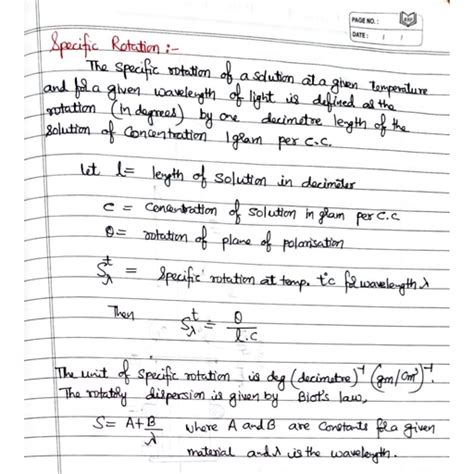 PAGE NO.:
DATE: / /
Specific Rotation :-
The specific rotation of a solution at a given temperature
and for a given wavelength of light is defined as the
rotation (in degrees) by one decimetre length of the
solution of concentration 1 gram per c.c.
let l = length of solution in decimeter
c = concentration of solution in gram per c.c
θ = rotation of plane of polarisation
S^t_λ = specific rotation at temp. t°c for wavelength λ
Then S^t_λ = θ / l.c
The unit of specific rotation is deg (decimetre)⁻¹ (gm/cm³)⁻¹.
The rotatory dispersion is given by Biot's law,
S = A + B/λ where A and B are constants for a given
material and λ is the wavelength.